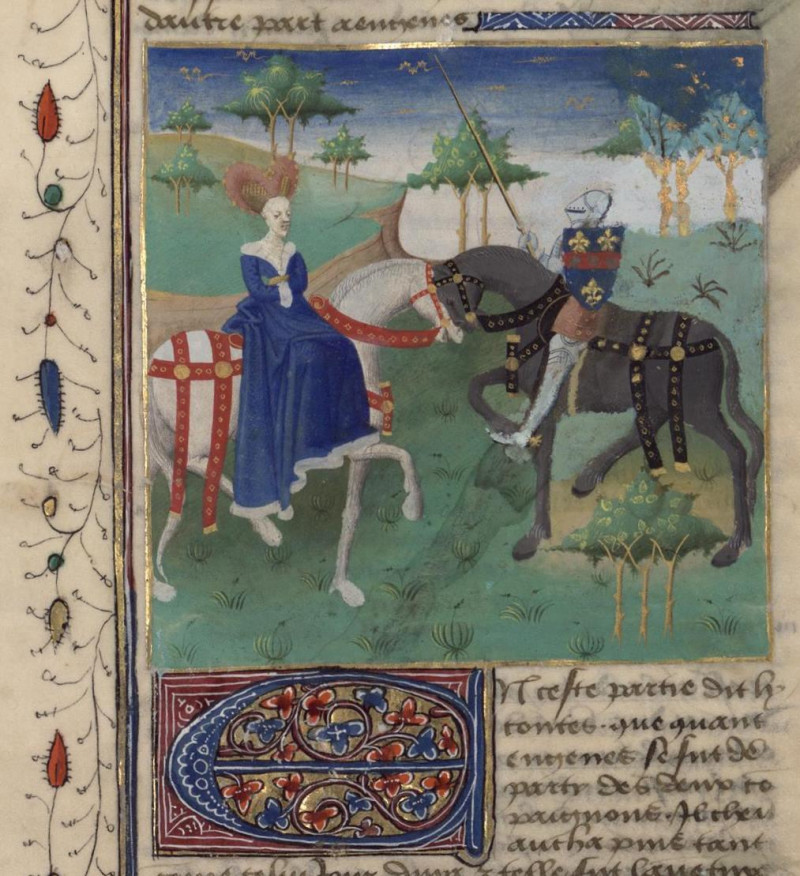 dautre part a engenes
En ceste partie dit ly
contes. que quant
engenes se fut de
party des deux co
paignons. Il chei
aucha puis tant